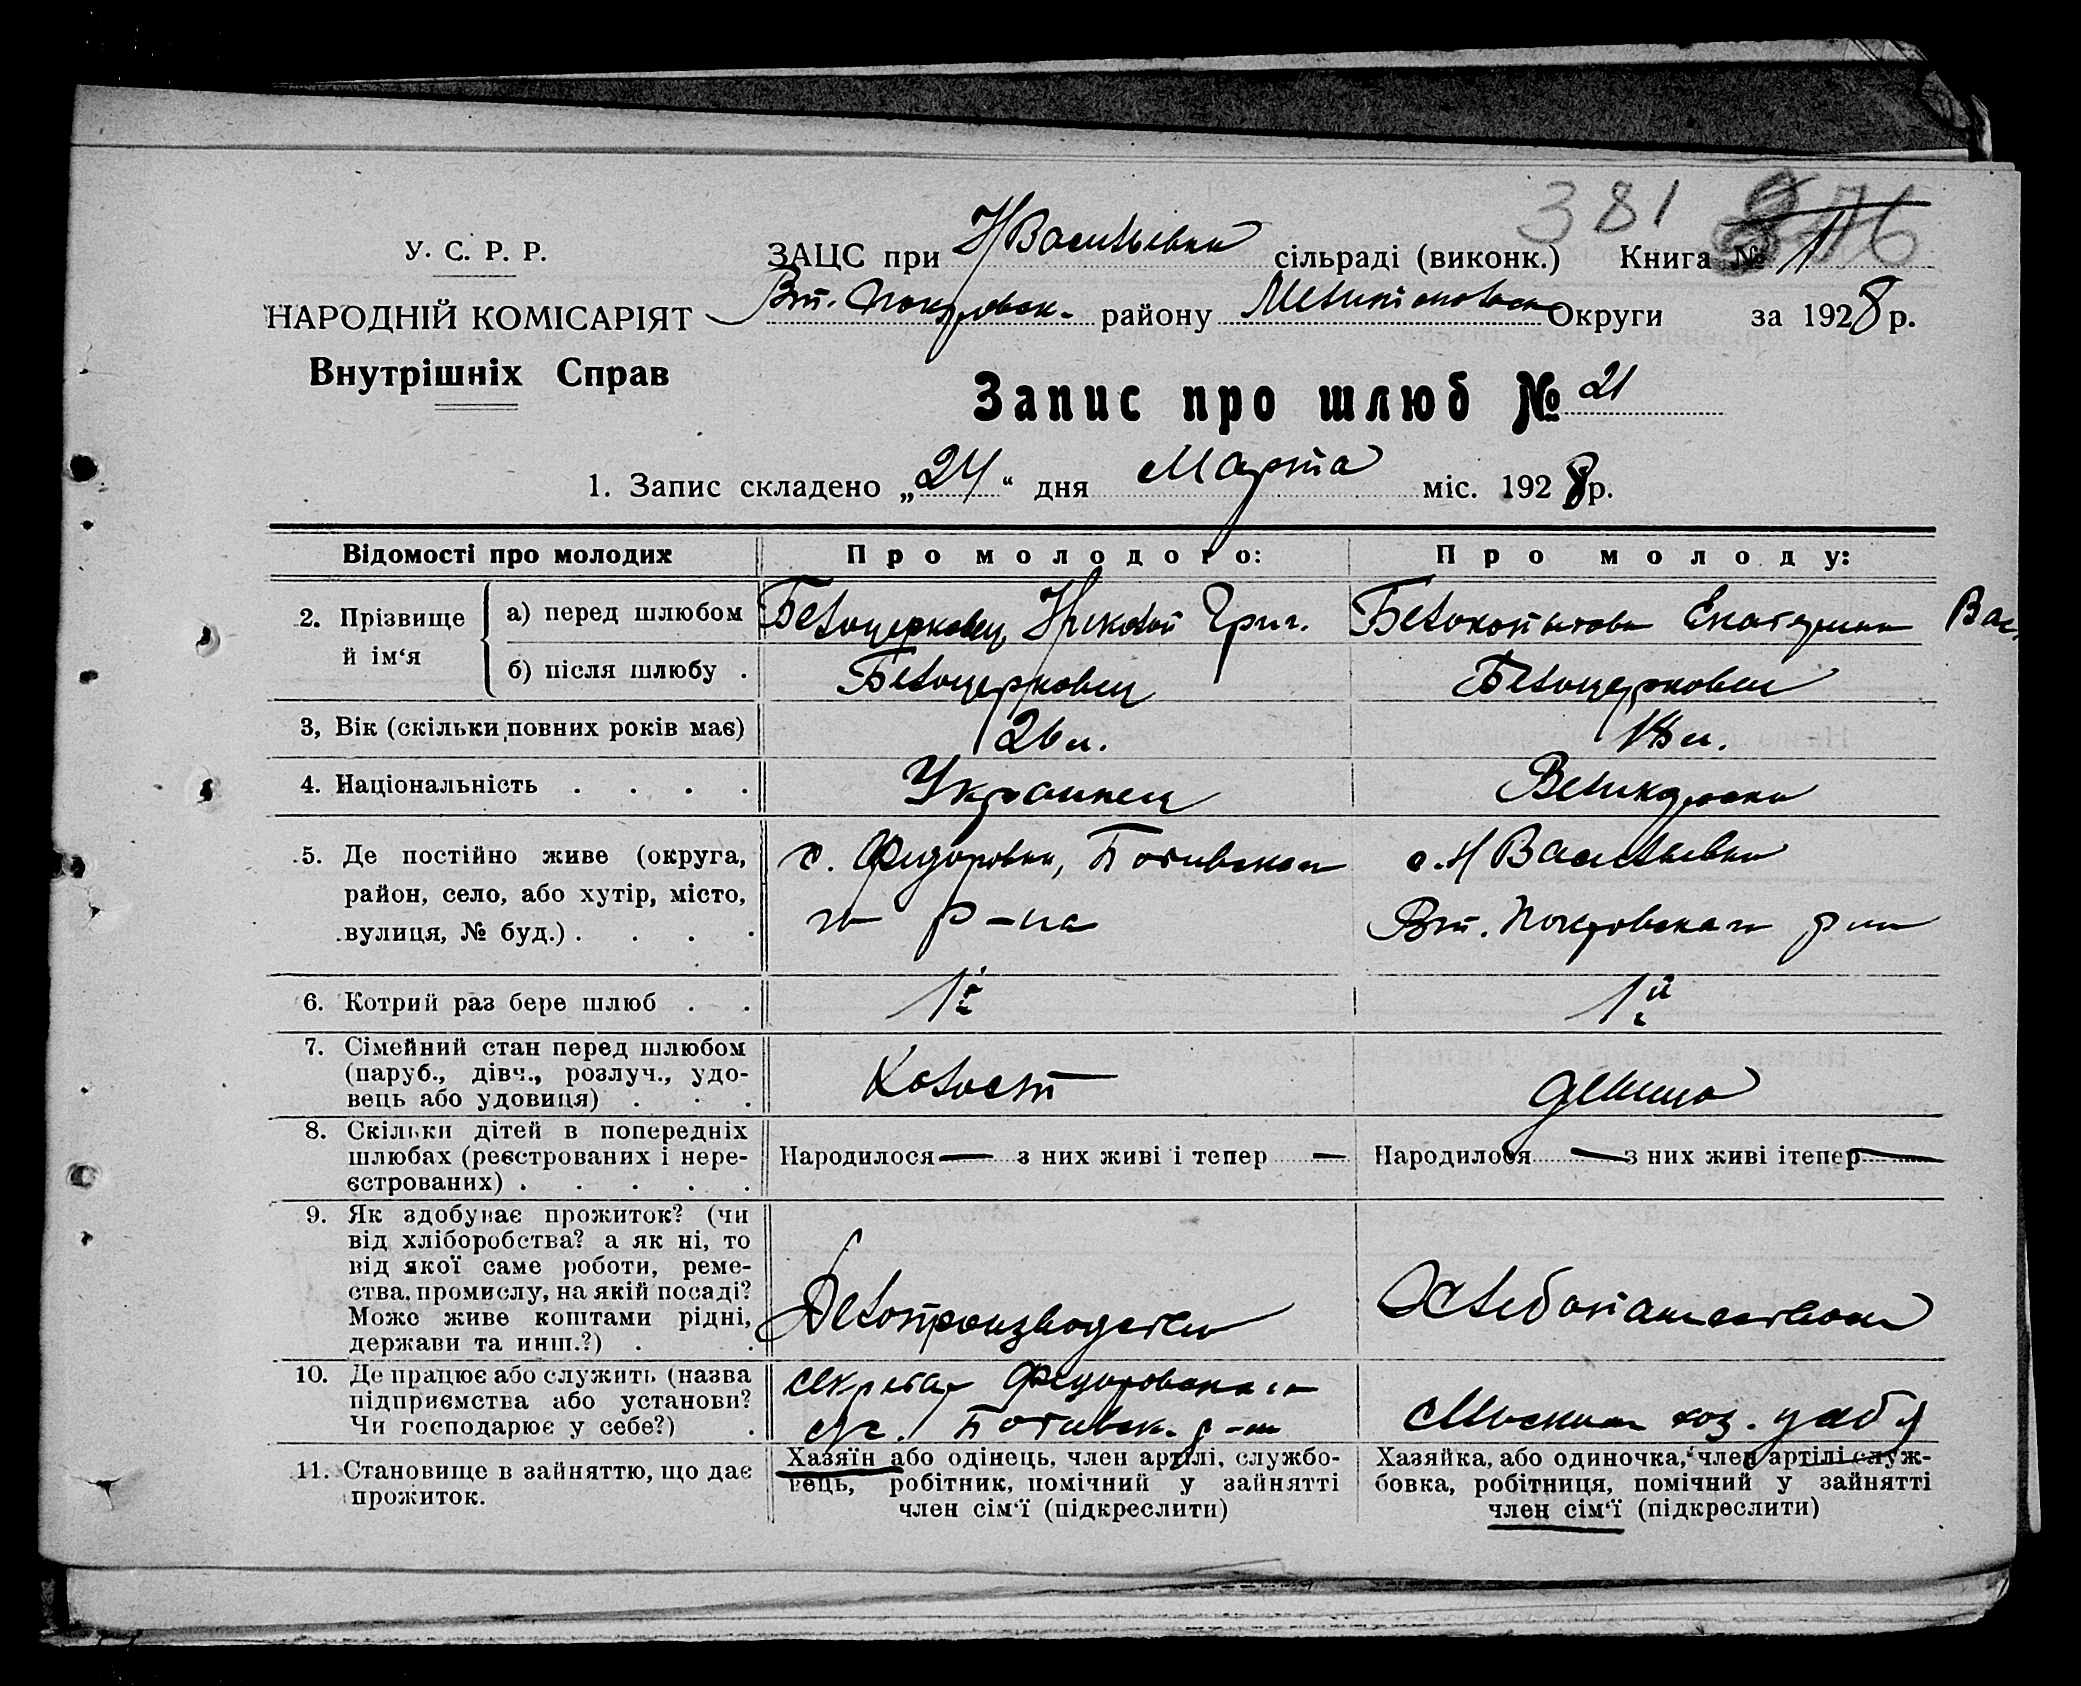 381
У. С. Р. Р.
НАРОДНІЙ КОМІСАРІЯТ
Внутрішніх Справ
ЗАЦС при Н Васильевки сільраді (виконк.) Книга № 1
Вт. Покровск. району Мелитопольск Округи за 1928 р.
Запис про шлюб № 21
1. Запис складено „24“ дня Марта міс. 1928 р.
Відомості про молодих Про молодого: Про молоду:
2. Прізвище й ім‘я
а) перед шлюбом Белоцерковец Николай Григ. Белокопытова Екатерина Вас.
б) після шлюбу . Белоцерковец Белоцерковец
3, Вік (скільки повних років має) 26 л. 18 л.
4. Національність . . . . Украинец Великоросска
5. Де постійно живе (округа, с. Федоровки, Ботиевского с. Н Васильевки
район, село, або хутір, місто, р-на Вт. Покровского р-на
вулиця, № буд.) . . . .
6. Котрий раз бере шлюб . . 1й 1й
7. Сімейний стан перед шлюбом
(паруб., дівч., розлуч., удо- Холост девица
вець або удовиця) . . .
8. Скільки дітей в попередніх
шлюбах (реєстрованих і нере- Народилося — з них живі і тепер — Народилося — з них живі і тепер —
єстрованих) . . . . .
9. Як здобуває прожиток? (чи
від хліборобства? а як ні, то
від якої саме роботи, реме-
ства, промислу, на якій посаді?
Може живе коштами рідні, Делопроизводством Хлебопашеством
держави та инш.?) . .
10. Де працює або служить (назва секретар Федоровского
підприємства або установи? с/с. Ботиевск. р-на сельским хоз. у себя
Чи господарює у себе?) .
11. Становище в зайняттю, що дає прожиток.
Хазяїн або одінець, член артілі, службо-
вець, робітник, помічний у зайнятті
член сім‘ї (підкреслити)
Хазяйка, або одиночка, член артілі служ-
бовка, робітниця, помічний у зайнятті
член сім‘ї (підкреслити)